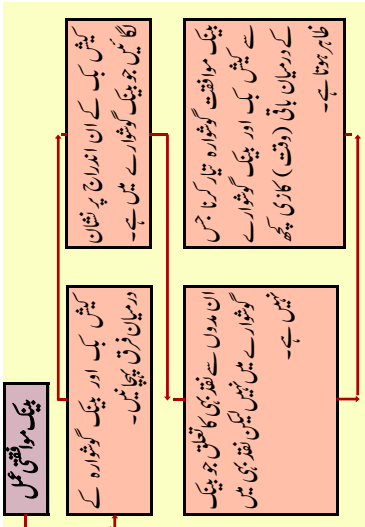 بینک موافقتی عمل
کیش بک اور بینک گوشوارہ کے
درمیان فرق پہچانیں۔
کیش بک کے ان اندراج پر نشان
لگائیں جو بینک گوشوارے میں ہے۔
ان مدوں سے نقد بہی کا تعلق جو بینک
گوشوارے میں نہیں لیکن نقد بہی میں
نہیں ہے۔
بینک موافقت گوشوارہ تیار کرنا جس
سے کیش بک اور بینک گوشوارے
کے درمیان باقی (وقت) کا زی کچھ
ظاہر ہوتا ہے۔